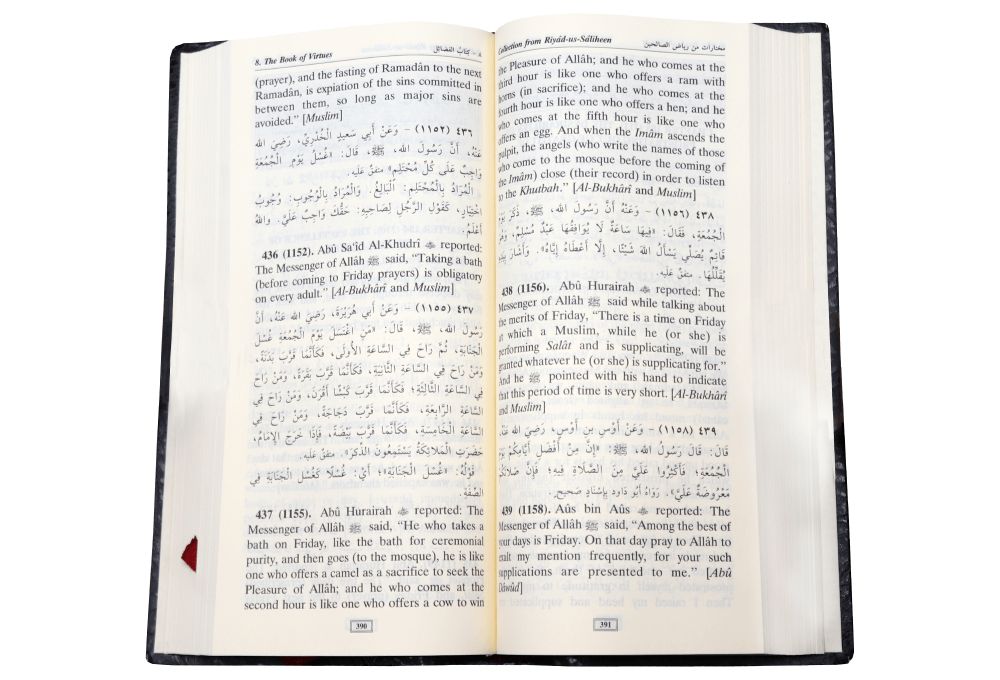 8. The Book of Virtues ٨ - كتاب الفضائل
(prayer), and the fasting of Ramadân to the next
Ramadân, is expiation of the sins committed in
between them, so long as major sins are
avoided.” [Muslim]
٤٣٦ (١١٥٢) - وَعَنْ أَبِي سَعِيدٍ الْخُدْرِيِّ، رَضِيَ الله
عَنْهُ، أَنَّ رَسُولَ الله، ﷺ، قَالَ: «غُسْلُ يَوْمِ الْجُمُعَةِ
وَاجِبٌ عَلَى كُلِّ مُحْتَلِمٍ» متفقٌ عليه.
الْمُرَادُ بِالْمُحْتَلِمِ: الْبَالِغُ. وَالْمُرَادُ بِالْوُجُوبِ: وُجُوبُ
اخْتِيَارٍ، كَقَوْلِ الرَّجُلِ لِصَاحِبِهِ: حَقُّكَ وَاجِبٌ عَلَيَّ. واللهُ
أَعْلَمُ.
436 (1152). Abû Sa‘îd Al-Khudrî reported:
The Messenger of Allâh ﷺ said, “Taking a bath
(before coming to Friday prayers) is obligatory
on every adult.” [Al-Bukhârî and Muslim]
٤٣٧ (١١٥٥) - وَعَنْ أَبِي هُرَيْرَةَ، رَضِيَ الله عَنْهُ، أَنَّ
رَسُولَ الله، ﷺ، قَالَ: «مَنِ اغْتَسَلَ يَوْمَ الْجُمُعَةِ غُسْلَ
الْجَنَابَةِ، ثُمَّ رَاحَ فِي السَّاعَةِ الأُولَى، فَكَأَنَّمَا قَرَّبَ بَدَنَةً،
وَمَنْ رَاحَ فِي السَّاعَةِ الثَّانِيَةِ، فَكَأَنَّمَا قَرَّبَ بَقَرَةً، وَمَنْ رَاحَ
فِي السَّاعَةِ الثَّالِثَةِ، فَكَأَنَّمَا قَرَّبَ كَبْشًا أَقْرَنَ، وَمَنْ رَاحَ فِي
السَّاعَةِ الرَّابِعَةِ، فَكَأَنَّمَا قَرَّبَ دَجَاجَةً، وَمَنْ رَاحَ فِي
السَّاعَةِ الْخَامِسَةِ، فَكَأَنَّمَا قَرَّبَ بَيْضَةً، فَإِذَا خَرَجَ الإِمَامُ،
حَضَرَتِ الْمَلائِكَةُ يَسْتَمِعُونَ الذِّكْرَ». متفقٌ عليه.
قَوْلُهُ: «غُسْلَ الْجَنَابَةِ»؛ أَيْ: غُسْلًا كَغُسْلِ الْجَنَابَةِ فِي
الصِّفَةِ.
437 (1155). Abû Hurairah reported: The
Messenger of Allâh ﷺ said, “He who takes a
bath on Friday, like the bath for ceremonial
purity, and then goes (to the mosque), he is like
one who offers a camel as a sacrifice to seek the
Pleasure of Allâh; and he who comes at the
second hour is like one who offers a cow to win
390
Collection from Riyâd-us-Sâliheen مختارات من رياض الصالحين
the Pleasure of Allâh; and he who comes at the
third hour is like one who offers a ram with
horns (in sacrifice); and he who comes at the
fourth hour is like one who offers a hen; and he
who comes at the fifth hour is like one who
offers an egg. And when the Imâm ascends the
pulpit, the angels (who write the names of those
who come to the mosque before the coming of
the Imâm) close (their record) in order to listen
to the Khutbah.” [Al-Bukhârî and Muslim]
٤٣٨ (١١٥٦) - وَعَنْهُ أَنَّ رَسُولَ الله، ﷺ، ذَكَرَ يَوْمَ
الْجُمُعَةِ، فَقَالَ: «فِيهَا سَاعَةٌ لَا يُوَافِقُهَا عَبْدٌ مُسْلِمٌ، وَهُوَ
قَائِمٌ يُصَلِّي يَسْأَلُ اللهَ شَيْئًا، إِلَّا أَعْطَاهُ إِيَّاهُ». وَأَشَارَ بِيَدِهِ
يُقَلِّلُهَا. متفقٌ عليه.
438 (1156). Abû Hurairah reported: The
Messenger of Allâh ﷺ said while talking about
the merits of Friday, “There is a time on Friday
at which a Muslim, while he (or she) is
performing Salât and is supplicating, will be
granted whatever he (or she) is supplicating for.”
And he ﷺ pointed with his hand to indicate
that this period of time is very short. [Al-Bukhârî
and Muslim]
٤٣٩ (١١٥٨) - وَعَنْ أَوْسِ بنِ أَوْسٍ، رَضِيَ الله عَنْهُ،
قَالَ: قَالَ رَسُولُ الله، ﷺ: «إِنَّ مِنْ أَفْضَلِ أَيَّامِكُمْ يَوْمَ
الْجُمُعَةِ؛ فَأَكْثِرُوا عَلَيَّ مِنَ الصَّلَاةِ فِيهِ؛ فَإِنَّ صَلَاتَكُمْ
مَعْرُوضَةٌ عَلَيَّ». رَوَاهُ أَبُو دَاود بِإِسْنَادٍ صَحِيحٍ.
439 (1158). Aûs bin Aûs reported: The
Messenger of Allâh ﷺ said, “Among the best of
your days is Friday. On that day pray to Allâh to
exalt my mention frequently, for your such
supplications are presented to me.” [Abû
Dâwûd]
391